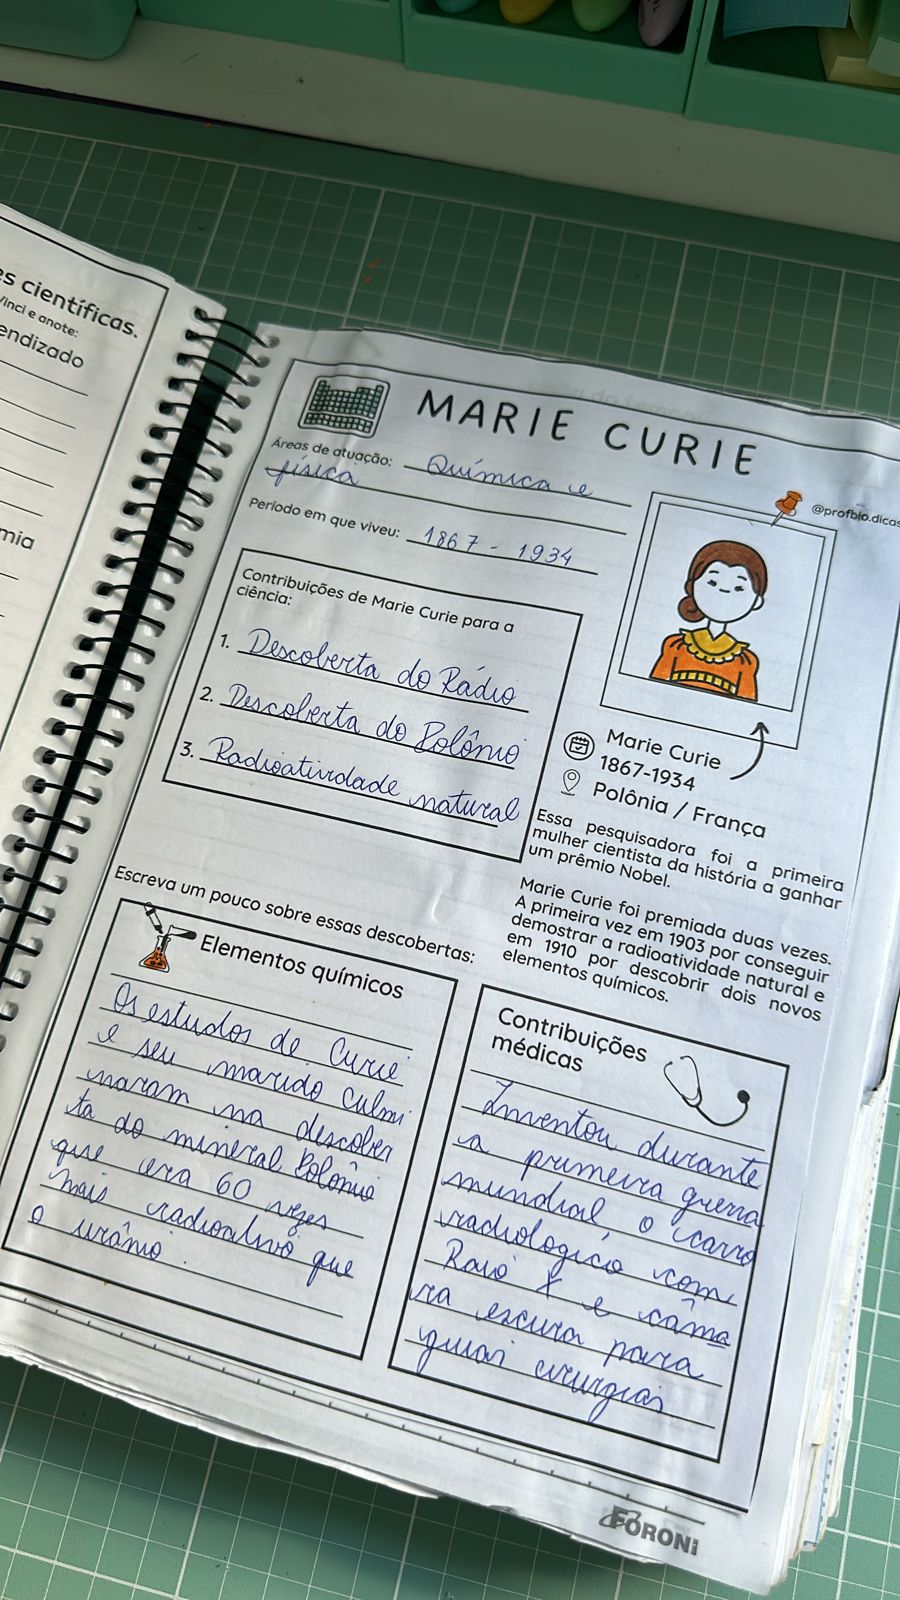 es científicas.
Vinci e anote:
endizado
mia
MARIE CURIE
Áreas de atuação: Química e
física
Período em que viveu: 1867 - 1934
@profbio.dicas
Contribuições de Marie Curie para a
ciência:
1. Descoberta do Rádio
2. Descoberta do Polônio
3. Radioatividade natural
Marie Curie
1867-1934
Polônia / França
Essa pesquisadora foi a primeira
mulher cientista da história a ganhar
um prêmio Nobel.
Marie Curie foi premiada duas vezes.
A primeira vez em 1903 por conseguir
demostrar a radioatividade natural e
em 1910 por descobrir dois novos
elementos químicos.
Escreva um pouco sobre essas descobertas:
Elementos químicos
Os estudos de Curie
e seu marido culmi
naram na descober
ta do mineral Polônio
que era 60 vezes
mais radioativo que
o urânio.
Contribuições
médicas
Inventou durante
a primeira guerra
mundial o carro
radiologico com
Raio X e câma
ra escura para
guiar cirurgias
FORONI